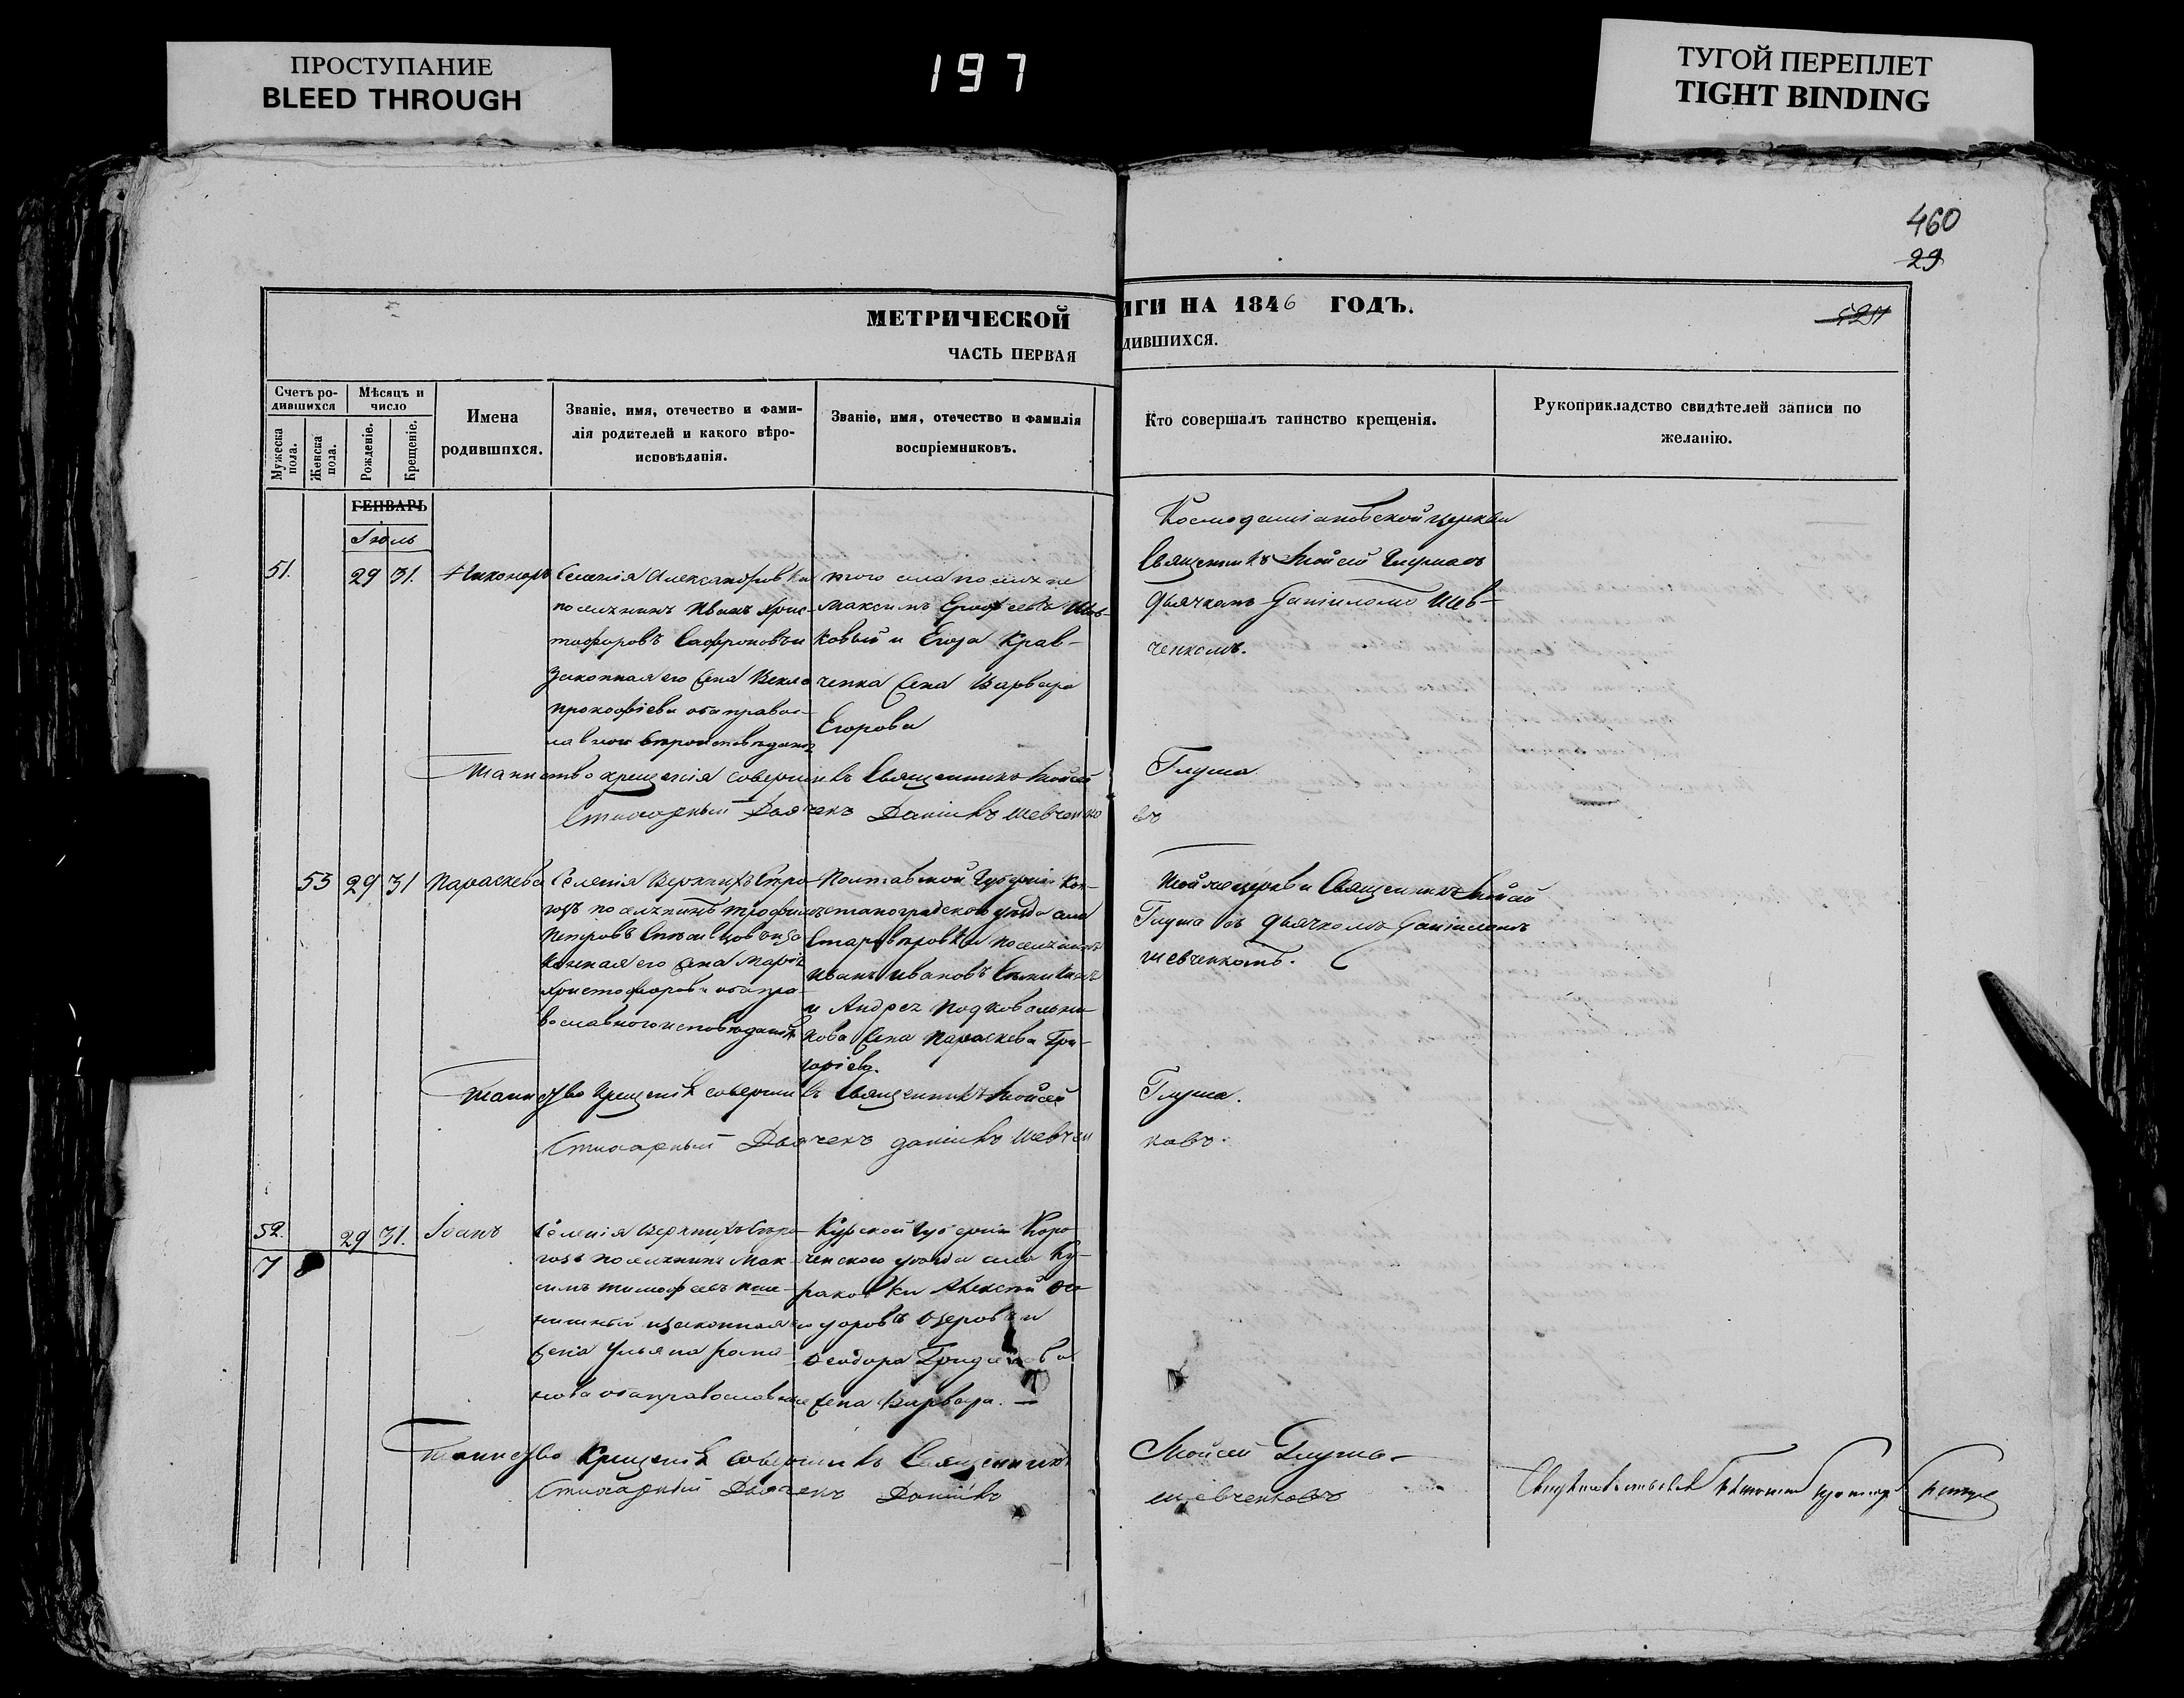 ПРОСТУПАНИЕ
BLEED THROUGH
197
ТУГОЙ ПЕРЕПЛЕТ
TIGHT BINDING
460
29
МЕТРИЧЕСКОЙ
ИГИ НА 1846 ГОДЪ.
ЧАСТЬ ПЕРВАЯ
ДИВШИХСЯ.
Счетъ ро-
дившихся
Мужеска
пола.
Женска
пола.
Мѣсяцъ и
число
Рожденіе.
Крещеніе.
Имена
родившихся.
Званіе, имя, отечество и фами-
лія родителей и какого вѣро-
исповѣданія.
Званіе, имя, отечество и фамилія
воспріемниковъ.
Кто совершалъ таинство крещенія.
Рукоприкладство свидѣтелей записи по
желанію.
ГЕНВАРЬ
Іюль
51.
29
31.
Никоноръ
Селенія Александровки
поселянинъ Иванъ Хрис-
тофоровъ Сафроновъ и
законная его жена Векла
Прокофіева оба правос-
лавнаго вѣроисповѣданія
того села поселяне
Максимъ Ерофеевъ
ковый и Егора Крав-
ченка жена Варвара
Егорова
Космодаміановской церкви
Священникъ Мойсей Глумаовъ
дьячкомъ Даніиломъ Шев-
ченкомъ.
Таинство крещенія совершилъ Священникъ Мойсей
Глума
Стихарный Дьячекъ Даніилъ Шевченко
въ
53
29
31
Параскева
Селенія Верхнихъ Сѣро-
гозъ поселянинъ Трофимъ
Петровъ
конная его жена Марія
Христофорова оба пра-
вославнаго исповѣданія
Полтавской Губерніи Кон-
стантоградского уѣзда села
Староверовки поселянинъ
Иванъ Ивановъ
и Андрея Подковальни-
кова жена Параскева Гри-
горіева.
Той же церкви Священникъ Мойсей
Глума съ дьячкомъ Даніиломъ
Шевченкомъ.
Таинство Крещенія совершилъ Священникъ Мойсей
Глума.
Стихарный Дьячекъ Даніилъ Шевчен
ковъ.
52.
29
31.
Іоанъ
Селенія Верхнихъ Сѣро-
гозъ поселянинъ Мак-
симъ Тимофеевъ
и законная его
жена Ульяна Рома-
нова оба православные
Курской Губерніи Коро-
ченского уѣзда села Ку-
раковки Алексей Фе-
доровъ Озеровъ и
Феодора
жена Варвара.
7
8
Таинство Крещенія совершилъ Священникъ
Мойсей Глума-
Стихарный Дьячекъ Даніилъ
Шевченковъ